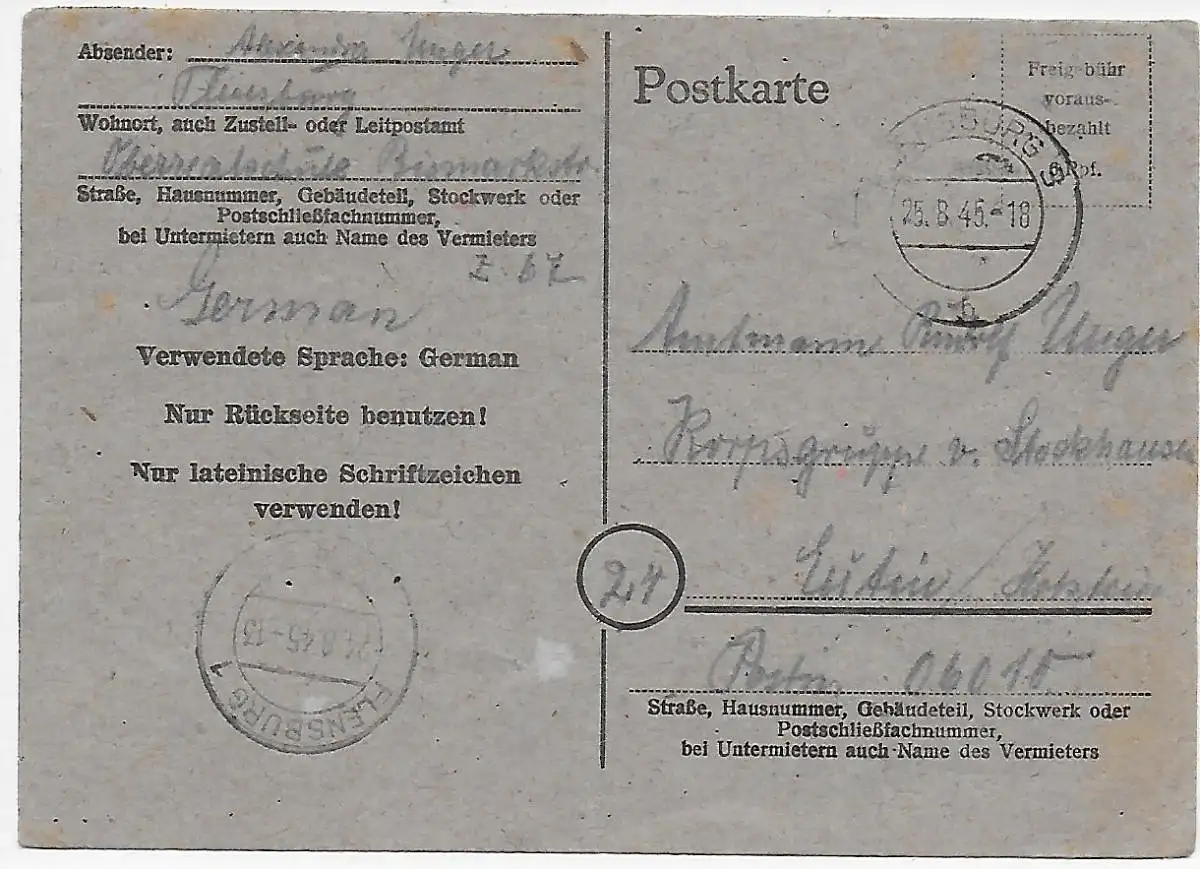 Absender: Alexandra Unger
Flensburg
Wohnort, auch Zustell- oder Leitpostamt
Oberrealschule Bismarkstr.
Straße, Hausnummer, Gebäudeteil, Stockwerk oder
Postschließfachnummer,
bei Untermietern auch Name des Vermieters
German
Verwendete Sprache: German
Nur Rückseite benutzen!
Nur lateinische Schriftzeichen
verwenden!
FLENSBURG 1
24.8.45-13
Postkarte
Freigebühr
voraus-
bezahlt
6 Rpf.
25.8.45.-18
b
Amtmann Rudolf Unger
Korpsgruppe v. Stockhausen
24
Eutin / Holstein
06010
Straße, Hausnummer, Gebäudeteil, Stockwerk oder
Postschließfachnummer,
bei Untermietern auch Name des Vermieters